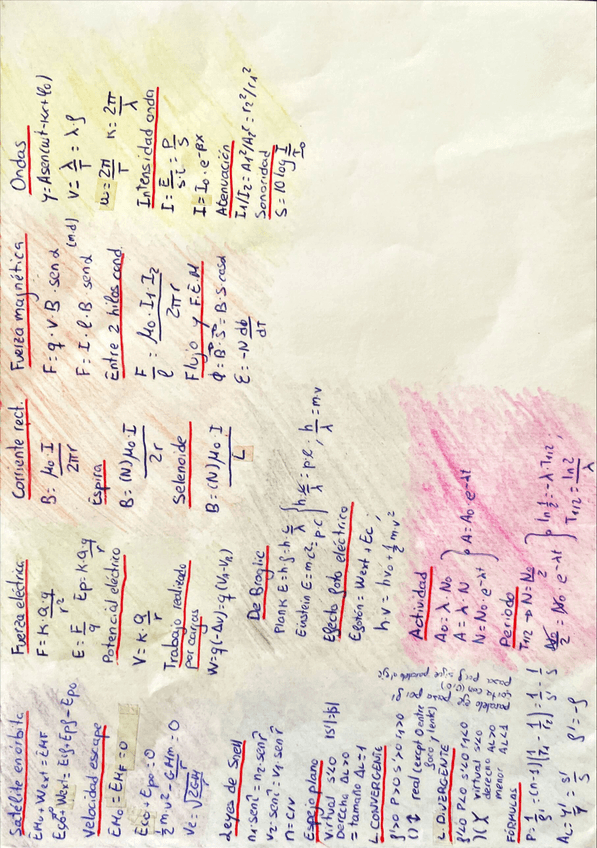 Satélite en órbita
EM0 + Wext = EMT
Ecf + Wext = Ecf + Epf - Ep0
Velocidad escape
EM0 = EMF = 0
Ec0 + Ep0 = 0
1/2 m v² - GMm/r = 0
Ve = √2GM/r
Leyes de Snell
n1·senî = n2·senr̂
v2·senî = v1·senr̂
n = c/v
Espejo plano
virtual s'<0 |s'|=|s|
Derecha AL>0
= tamaño AL=1
L. CONVERGENTE
f'>0 P>0 s'>0 r1>0
() ↕ real (except 0 entre foco y lente)
L. DIVERGENTE
f'<0 P<0 s'<0 r1<0
)( virtual s'<0
derecho AL>0
menor AL<1
FÓRMULAS
P = 1/f' = (n-1)(1/r1 - 1/r2) = 1/s' - 1/s
AL = y'/y = s'/s f' = -f
Fuerza eléctrica
F = K·Q·q/r²
E = F/q Ep = K Q q/r
Potencial eléctrico
V = K·Q/r
Trabajo realizado
por cargas
W = q(-ΔV) = q(VA-VB)
De Broglie
Plank E = h·f = h·c/λ
Einstein E = mc² = p·c } h·c/λ = p·c ; h/λ = m·v
Efecto fotoeléctrico
Efotón = Wext + Ec
h·ν = hν0 + 1/2 m v²
Actividad
A0 = λ·N0
A = λ·N
N = N0·e^-λt } A = A0·e^-λt
Periodo
T1/2 → N = N0/2
N0/2 = N0·e^-λt } ln 1/2 = -λ·T1/2 ;
T1/2 = ln2/λ
Corriente rect.
B = μ0·I/2πr
Espira
B = (N)μ0·I/2r
Selenoide
B = (N)μ0·I/L
Fuerza magnética
F = q·v·B·senα
F = I·l·B·senα (m.d)
Entre 2 hilos cond.
F/l = μ0·I1·I2/2πr
Flujo y F.E.M
Φ = B·S = B·S·cosα
ε = -N dΦ/dT
Ondas
y = Asen(ωt-kx+φ0)
v = λ/T = λ·f
ω = 2π/T k = 2π/λ
Intensidad onda
I = E/s·t = P/S
I = I0·e^-βx
Atenuación
I1/I2 = A1²/A2² = r2²/r1²
Sonoridad
S = 10 log I/I0